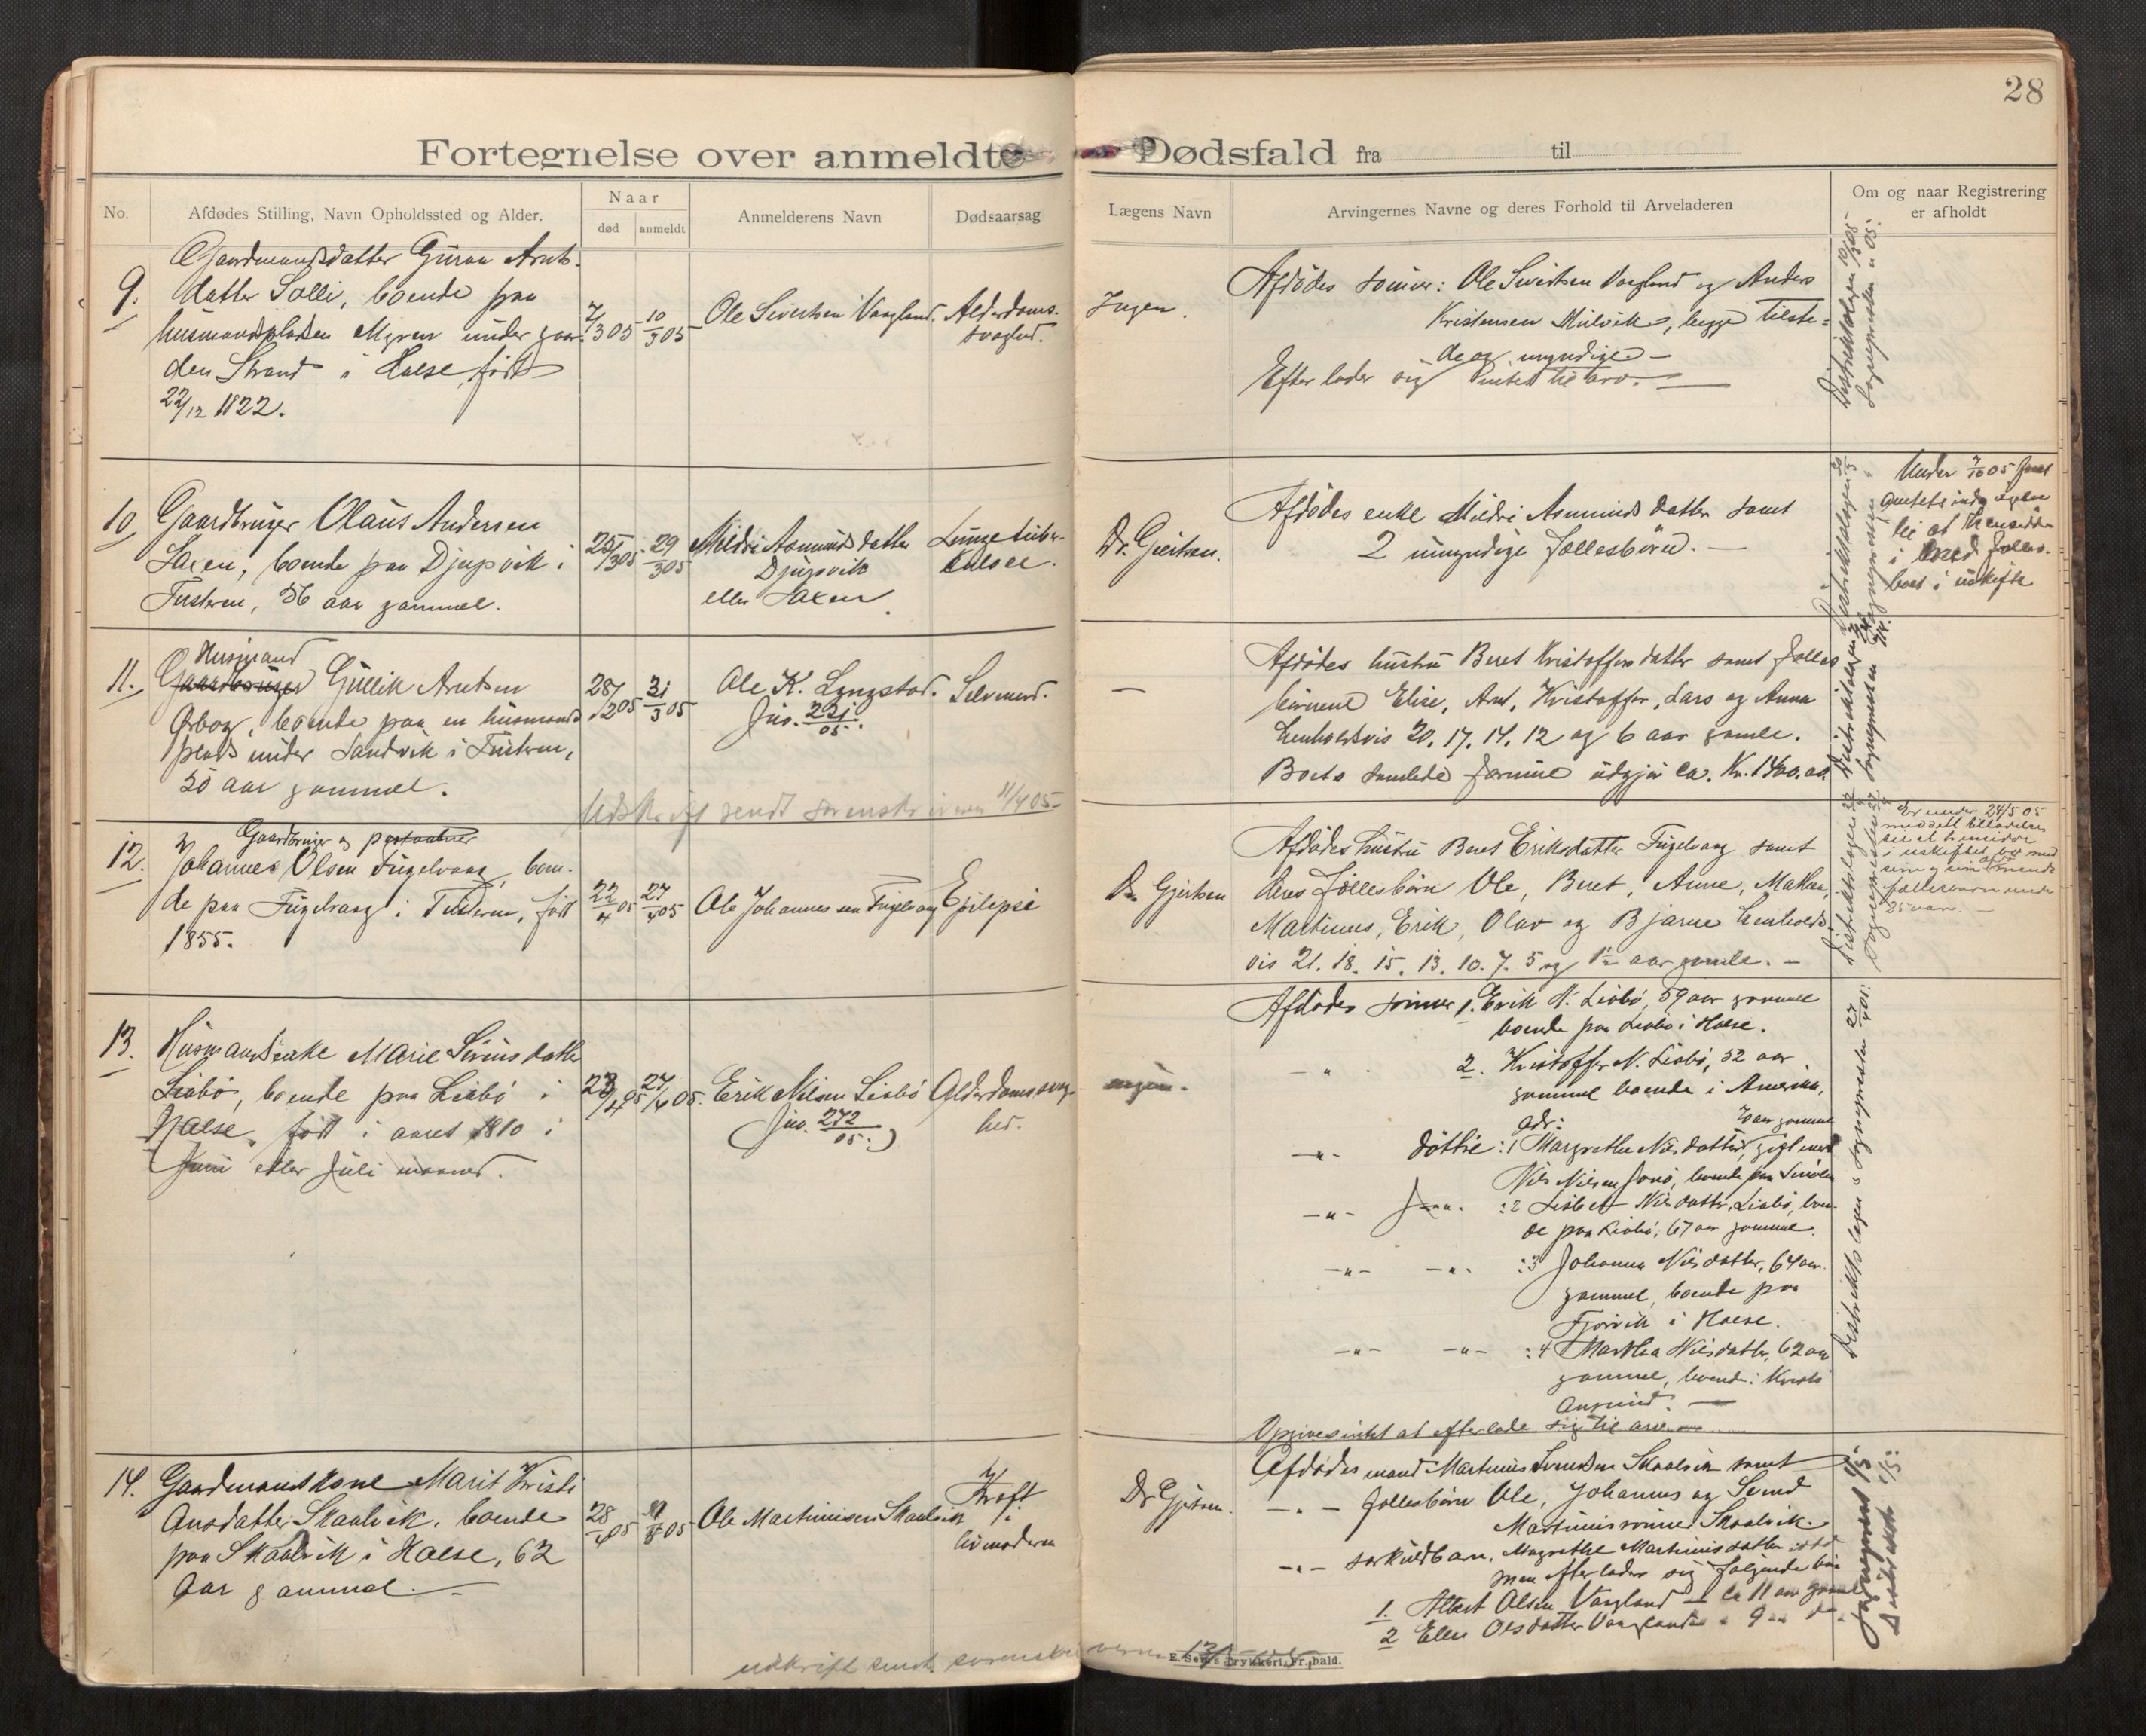 28
Fortegnelse over anmeldte Dødsfald fra til
No.
Afdødes Stilling, Navn Opholdssted og Alder.
Naar
død
anmeldt
Anmelderens Navn
Dødsaarsag
Lægens Navn
Arvingernes Navne og deres Forhold til Arveladeren
Om og naar Registrering
er afholdt
9.
Gaardmandsdatter Guron Arnts-
datter Solli, boende paa
husmandspladsen Myren under gaar-
den Strand i Halse, født
22/12 1822.
7/3 05
10/3 05
Ole Sivertsen Vaagland.
Alderdoms-
svaghed.
Ingen.
Afdødes sönner: Ole Sivertsen Vaagland og Anders
Kristensen Mülvik, begge tilste-
de og myndige
Efterlader sig intet til arv.
10.
Gaardbruger Olaus Andersen
Saxen, boende paa Djupvik i
Tusteren, 56 aar gammel.
25/3 05
29/3 05
Mildri Asmundsdatter
Djupvik
eller Saxen.
Lungetuber-
kulose.
Dr. Gjertsen.
Afdødes enke Mildri Asmundsdatter samt
2 umyndige fællesbörn.
Under 7/10 05
i uskifte
11.
Husmand
Gaardbruger Gullik Arntsen
Orbog, boende paa en husmands
plads under Sandvik i Tusteren,
50 aar gammel.
28/2 05
31/3 05
Ole K. Lyngstad.
Jno. 221/05.
Selvmord.
Afdødes hustru Beret Kristoffersdatter samt fælles
börnene Elise, Arnt, Kristoffer, Lars og Anna
henholdsvis 20, 17, 14, 12 og 6 aar gamle.
Boets samlede formue udgjör ca. Kr. 1400.00.
Udskrift sendt sorenskriveren 11/4 05
12.
Gaardbruger og
Johannes Olsen Fuglvaag, boen-
de paa Fuglvaag i Tusteren, født
1855.
22/4 05
27/4 05
Ole Johannessen Fuglvaag
Epilepsi
Dr. Gjertsen
Afdødes hustru Beret Eriksdatter Fuglvaag samt
deres fællesbörn Ole, Beret, Anne, Mathea,
Martinus, Erik, Olav og Bjarne henholds-
vis 21. 18. 15. 13. 10. 7. 5 og 1½ aar gamle.
Er under 24/5 05
meddelt tilladelse
til at hensidde
i uskiftet bo med
sin afdöde mands
fællesbörn under
25 aar.
13.
Husmandsenke Marie Siviusdatter
Liabö, boende paa Liabö i
Halse, født i aaret 1810 i
Juni eller Juli maaned.
23/4 05
27/4 05.
Erik Nilsen Liabö
(Jno. 272/05.)
Alderdomssvag-
hed.
ingen.
Afdødes sönner 1. Erik N. Liabö, 59 aar gammel
boende paa Liabö i Halse.
2. Kristoffer N. Liabö, 52 aar
gammel boende i Amerika,
adr:
70 aar gammel
döttre: 1 Margrethe Nilsdatter, gift med
Nils Nilsen
:2 Lisbet Nilsdatter, Liabö, boen-
de paa Liabö, 67 aar gammel.
:3 Johanna Nilsdatter, 64 aar
gammel, boende paa
Fjorvik i Halse.
:4 Marthea Nilsdatter, 62 aar
gammel, boende i Kristi
ansund.
Opgives intet at efterlade sig til arv.
Distriktslægen & sognepresten 27/4 05.
14.
Gaardmandskone Marit Kristi
ansdatter Skaalvik, boende
paa Skaalvik i Halse, 62
aar gammel.
28/4 05
Ole Martinusen Skaalvik
Kræft
i
livmoderen
Dr Gjertsen.
Afdødes mand Martinus Svendsen Skaalvik samt
fællesbörn Ole, Johannes og Svend
Martinussönner Skaalvik.
særkuldbarn, Magrethe Martinusdatter
men efterlader sig følgende börn
1. Albert Olsen Vaagland ca 11 aar gammel
2 Ellen Olsdatter Vaagland 9 do.
Sognepresten 1/5
udskrift sendt sorenskriveren
E. Sem's Trykkeri, Fr.hald.